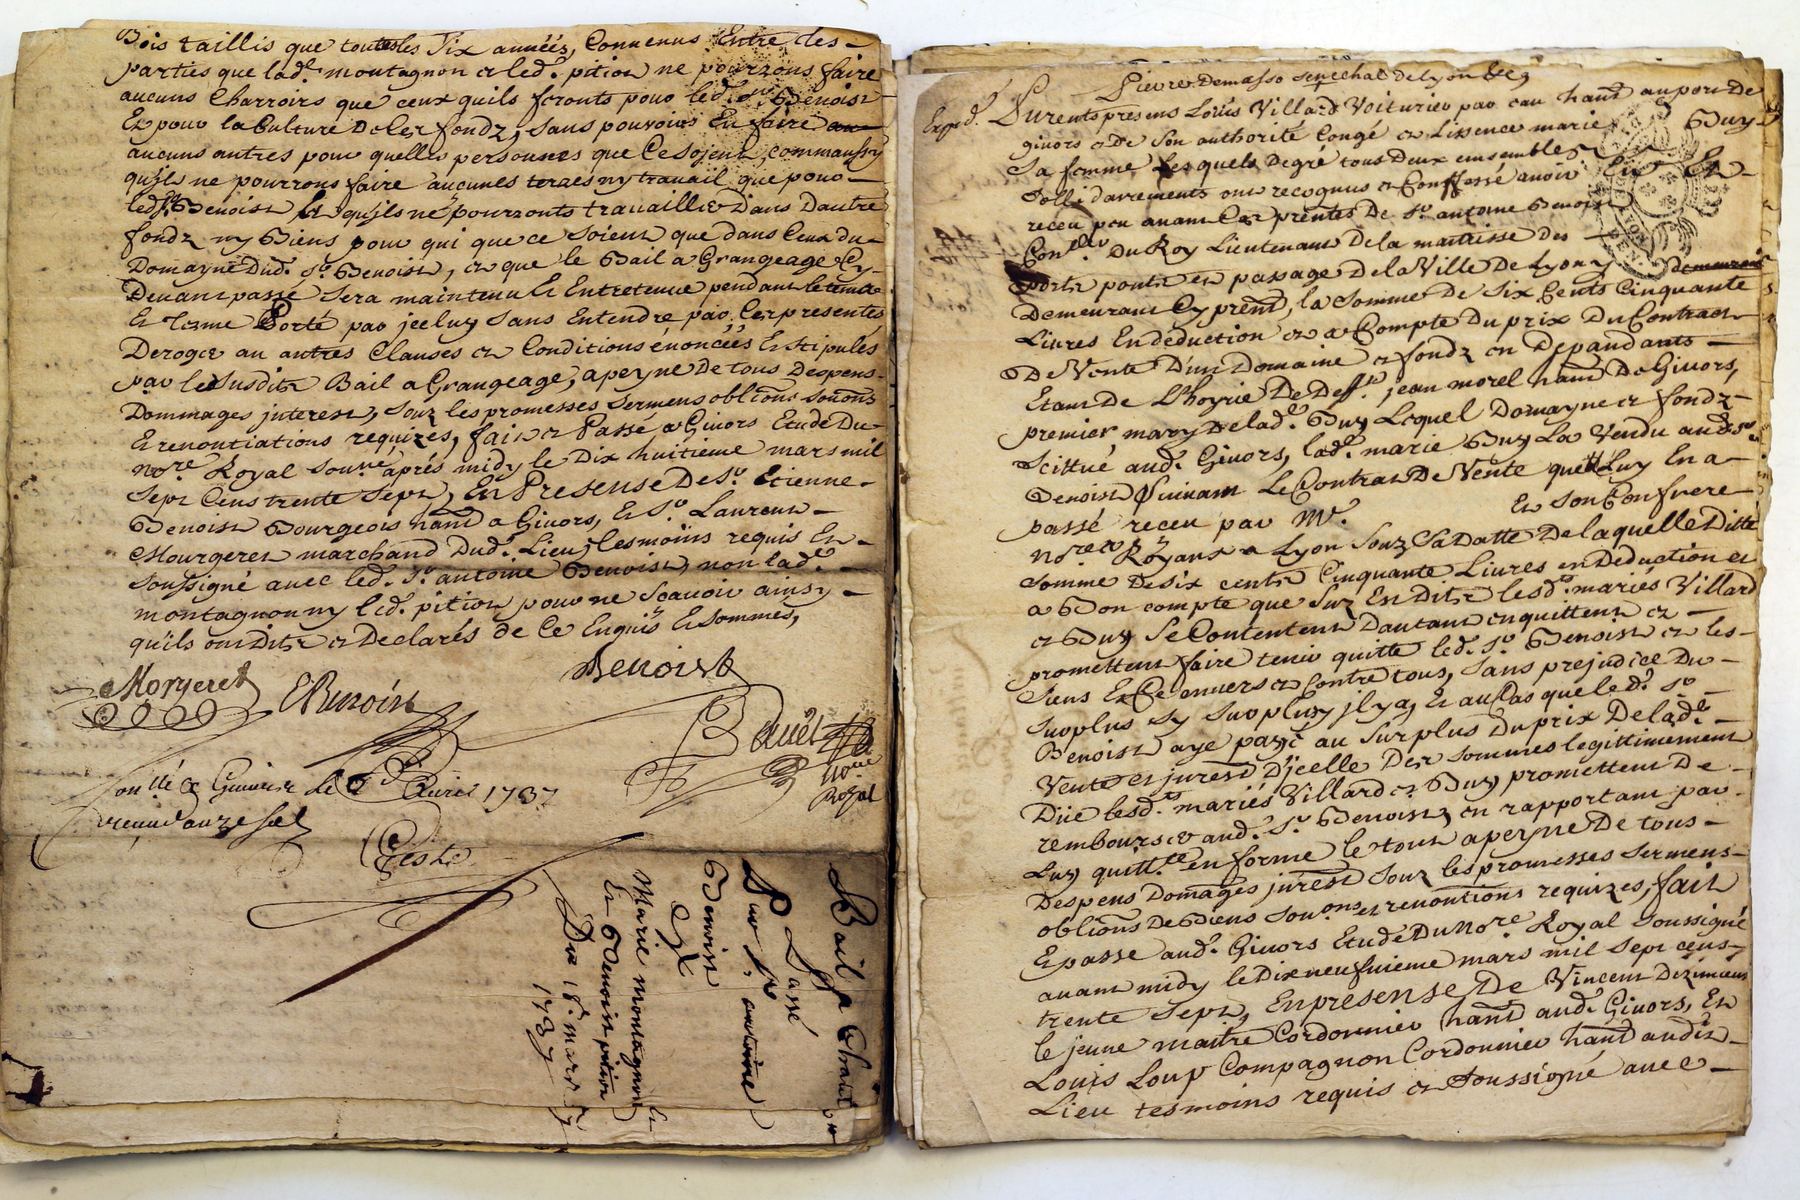 Bois taillis que toutes les six années, Convenus Entre les
parties que lad.e montagnon et led. pition ne pourront faire
aucuns Charrois que ceux quils feronts pour led. sr. Benoist
Et pour la Culture de les fondz, sans pouvoir En faire
aucuns autres pour quelles personnes que Ce soient, comm'aussy
quils ne pourrons faire aucunes terres ny travail que pour
led. sr. Benoist, Et quils ne pourronts travailler dans Dautre
fondz ny Biens pour qui que ce soient que dans Ceux du
Domayne dud. sr. Benoist, et que le Bail a Grangeage Cy
Devant passé sera maintenu Et Entretenue pendant le tems
Et terme Porté par jceluy sans Entendre par Les presentes
Deroger au autres Clauses et Conditions énoncéés Et stipulés
par le susdit Bail a Grangeage, a peyne De tous Despens
Dommages jnterest, souz les promesses sermens oblions
Et renontiations requizes, fait et Passé a Givors Etude Du
no.re Royal sou.né aprés midy le Dix huitieme mars mil
sept Cens trente sept, En Presense De sr. Etienne
Benoist Bourgeois hant a Givors, Et sr. Laurent
Mourgeret marchand Dud. Lieu, tesmoins requis Et
soussigné avec led. sr. antoine Benoist, non lad.e
montagnon ny led. pition pour ne scavoir ainsy
quils ont Dit et Declarés de Ce Enquis Et sommés,
Morgeret EBenoist Benoist
Bauët
No.re
Royal
Con.llé a Givors le avril 1737
receu douze sols
Bail a Chant
Passé
Par sr. antoine
Benoist
a
Marie montagnon Et
Et Benoist pition
Du 18e. mars
1737
Pierre Demasso senechal de Lyon
Exped. Furents presens Louis Villard Voiturier par eau hant au port de
givors et De son authorité Congé et Lissence marie Buy
sa femme, Lesquels de gré tous deux ensembles Et
sollidairements ont recognus et Confessé avoir Eu Et
receu peu avant Les prentes De sr. antoine Benoist
Con.er du Roy Lieutenant De la maitrisse des
ports ponts et passage De la Ville De Lyon y
Demeurant Cy prent, la somme De six Cents Cinquante
Livres En deduction et a Compte Du prix Du Contract
De Vente D'un Domaine et fondz en Dependants
Etant De L'hoyrie De Deff.t jean morel hant De Givors,
premier mary De lad.e Buy, Lequel Domayne et fondz
scittué aud. Givors, lad.e marie Buy La Vendu aud. sr.
Benoist suivant Le Contrat De Vente quelle Luy En a
passé receu par Me. Et son Confrere
no.res Royaux a Lyon souz sa Datte De laquelle Ditte
somme De six cents Cinquante Livres en Deduction et
a Bon compte que sur En Dit lesd. mariés Villard
et Buy se Contentent Dautant en quittent et
promettent faire tenir quitte led. sr. Benoist et les
siens Et Ce envers et contre tous, sans prejudice Du
surplus sy surplus jl y a, Et au Cas que led. sr.
Benoist aye payé au surplus du prix De lad.e
Vente et jnrest D'jcelle Des sommes legittimement
Düe lesd. mariés Villard et Buy promettent De
rembourser aud. sr. Benoist, en rapportant par
Luy quitt.ce en forme le tout a peyne De tous
Despens Domages jnrest souz les promesses sermens
oblions De Biens et renontions requizes, fait
Et passé aud. Givors Etude Du No.re Royal soussigné
avant midy le Dix neufvieme mars mil sept cens
trente sept, En presense De Vincent Dezimieux
le jeune maitre Cordonnier hant aud. Givors, Et
Louis Loup Compagnon Cordonnier hant audit
Lieu tesmoins requis et soussigné avec